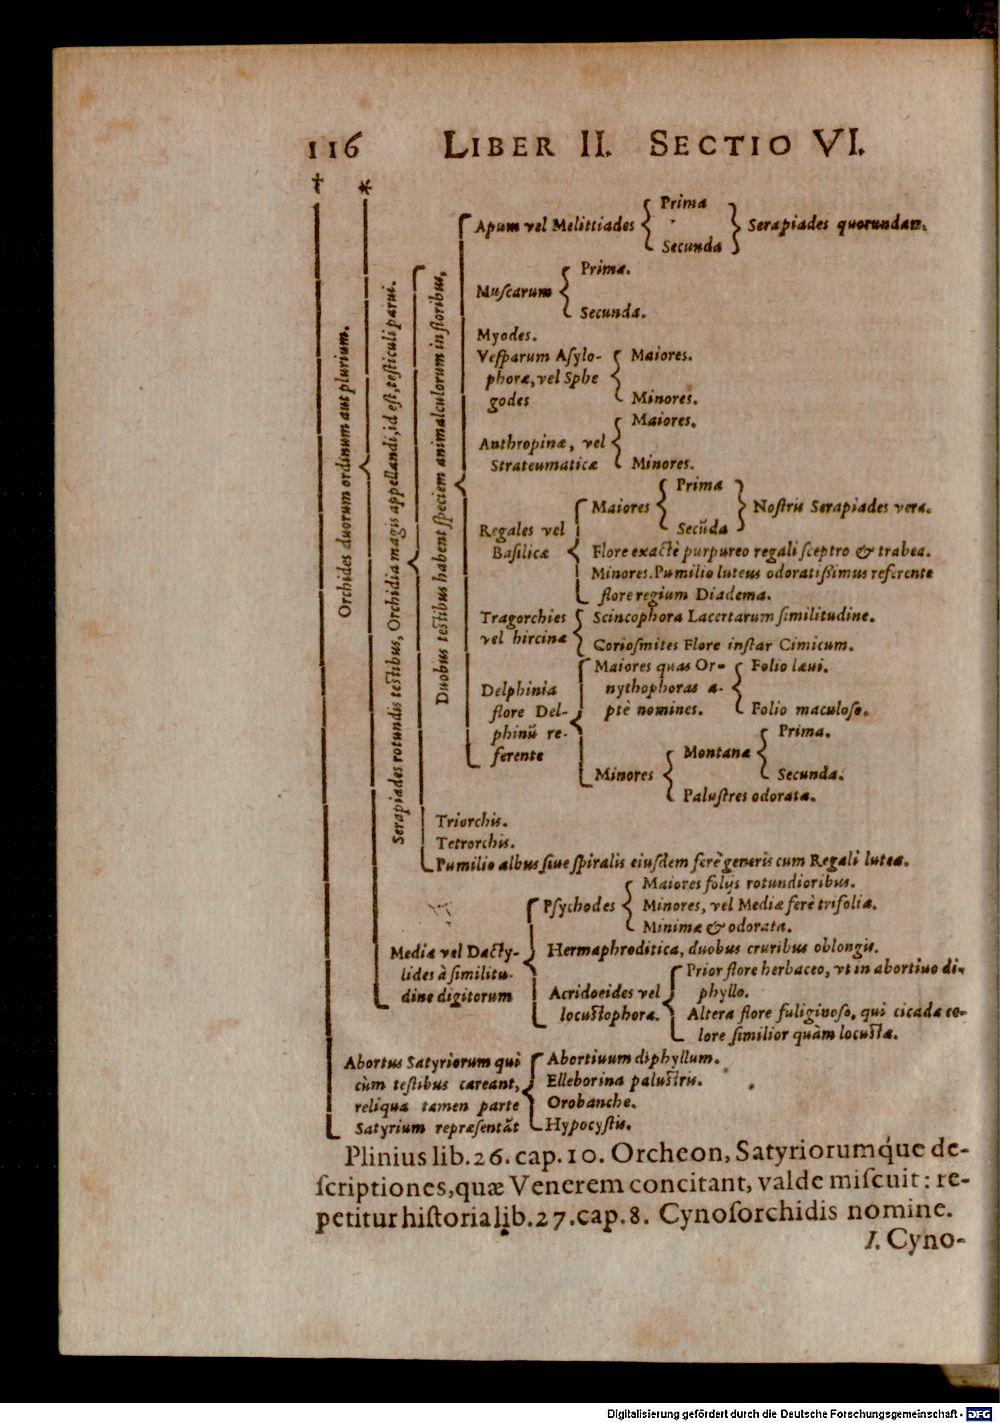 116 LIBER II. SECTIO VI.
† *
Orchides duorum ordinum aut plurium.
Serapiades rotundis testibus, Orchidia magis appellandi, id est, testiculi parui.
Duobus testibus habent speciem animalculorum in floribus,
Apum vel Melittiades
Prima
Secunda
Serapiades quorundam.
Muscarum
Prima.
Secunda.
Myodes.
Vesparum Asylo-
phoræ, vel Sphe
godes
Maiores.
Minores.
Anthropinæ, vel
Strateumaticæ
Maiores.
Minores.
Regales vel
Basilicæ
Maiores
Prima
Secūda
Nostris Serapiades vera.
Flore exactè purpureo regali sceptro & trabea.
Minores. Pumilio luteus odoratissimus referente
flore regium Diadema.
Tragorchies
vel hircinæ
Scincophora Lacertarum similitudine.
Coriosmites Flore instar Cimicum.
Delphinia
flore Del-
phinū re-
ferente
Maiores quas Or-
nythophoras a-
ptè nomines.
Folio laui.
Folio maculoso.
Minores
Montanæ
Prima.
Secunda.
Palustres odorata.
Triorchis.
Tetrorchis.
Pumilio albus siue spiralis eiusdem ferè generis cum Regali lutea.
Mediæ vel Dacty-
lides à similitu-
dine digitorum
Psychodes
Maiores folijs rotundioribus.
Minores, vel Mediæ ferè trifoliæ.
Minimæ & odorata.
Hermaphroditica, duobus cruribus oblongis.
Acridoeides vel
locustophoræ.
Prior flore herbaceo, vt in abortiuo di-
phyllo.
Altera flore fuliginoso, qui cicadæ co-
lore similior quàm locustæ.
Abortus Satyriorum qui
cùm testibus careant,
reliqua tamen parte
Satyrium repræsentāt
Abortiuum diphyllum.
Elleborina palustris.
Orobanche.
Hypocystis.
Plinius lib. 26. cap. 10. Orcheon, Satyriorumq́ue de-
scriptiones, quæ Venerem concitant, valde miscuit: re-
petitur historia lib. 27. cap. 8. Cynosorchidis nomine.
I. Cyno-
Digitalisierung gefördert durch die Deutsche Forschungsgemeinschaft - DFG